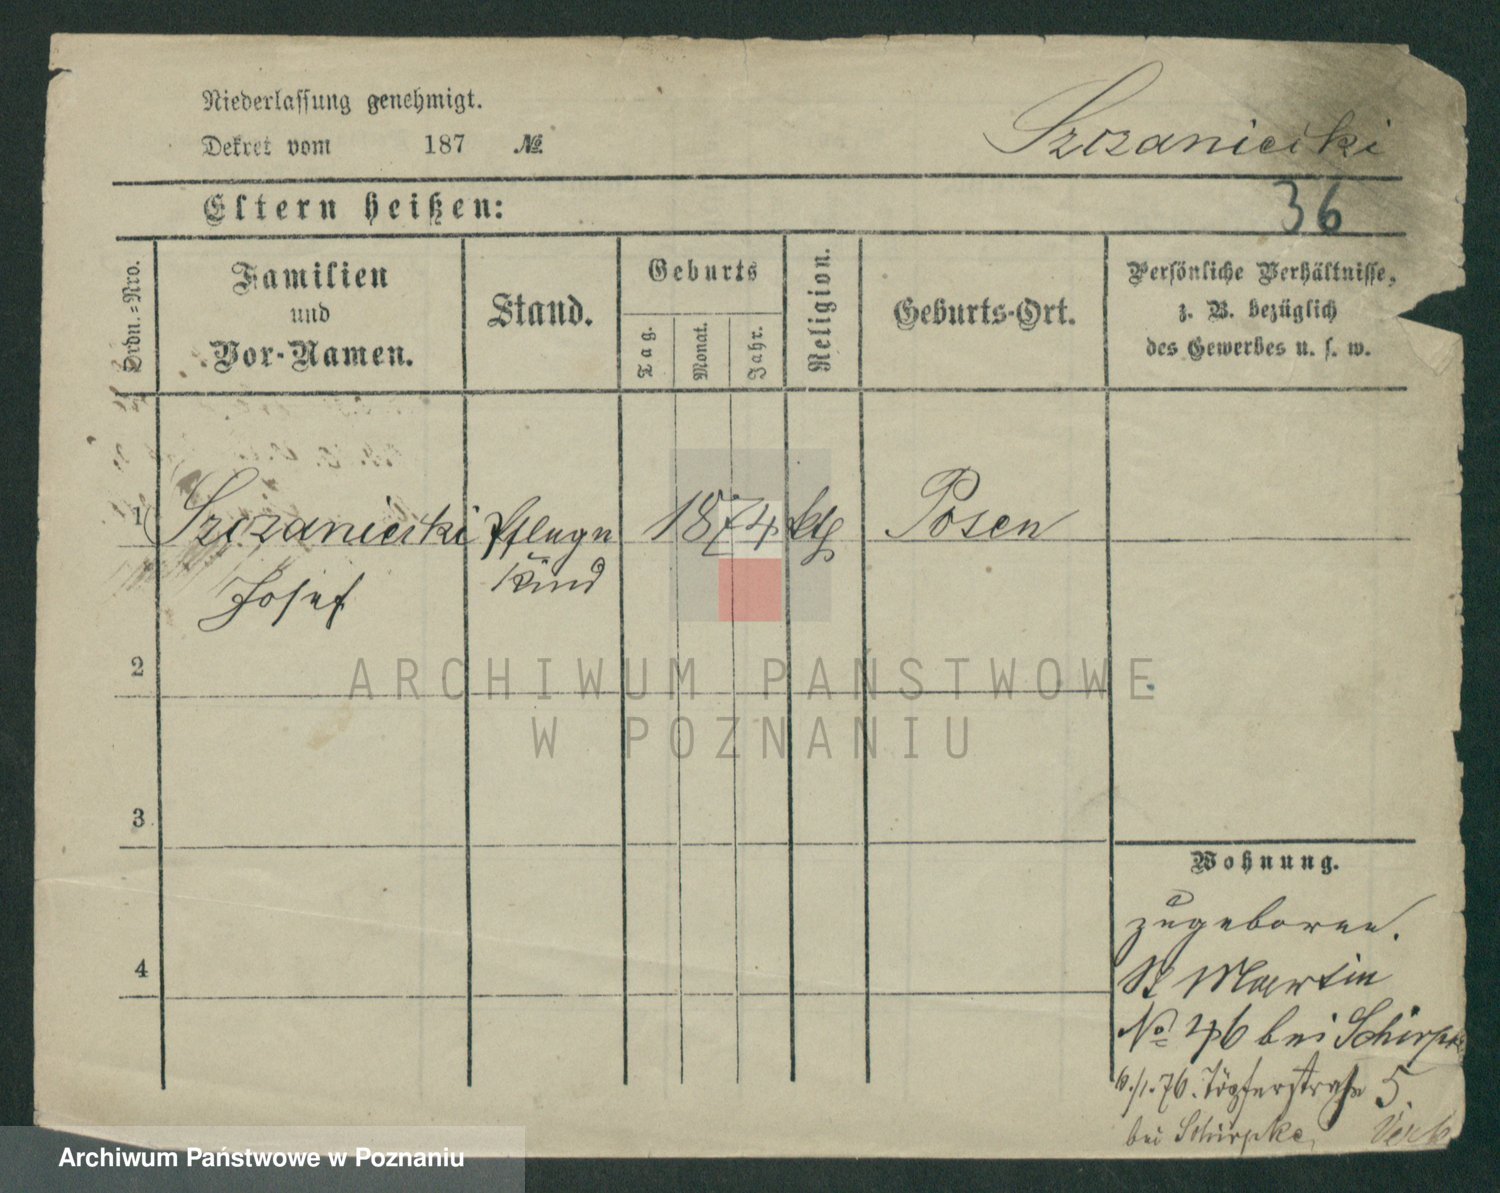 Niederlassung genehmigt.
Dekret vom 187 №
Szczaniecki
Eltern heißen:
36
Ordn.=Nro.
Familien
und
Vor-Namen.
Stand.
Geburts
Tag.
Monat.
Jahr.
Religion.
Geburts-Ort.
Persönliche Verhältnisse,
z. B. bezüglich
des Gewerbes u. s. w.
1 Szczaniecki Pflege 1874 kth Posen
Josef Kind
2
3
4
Wohnung.
zugeboren.
St Martin
No 46 bei Schirpke
6./1.76. Töpferstraße 5.
bei Schirpke,
ARCHIWUM PAŃSTWOWE
W POZNANIU
Archiwum Państwowe w Poznaniu